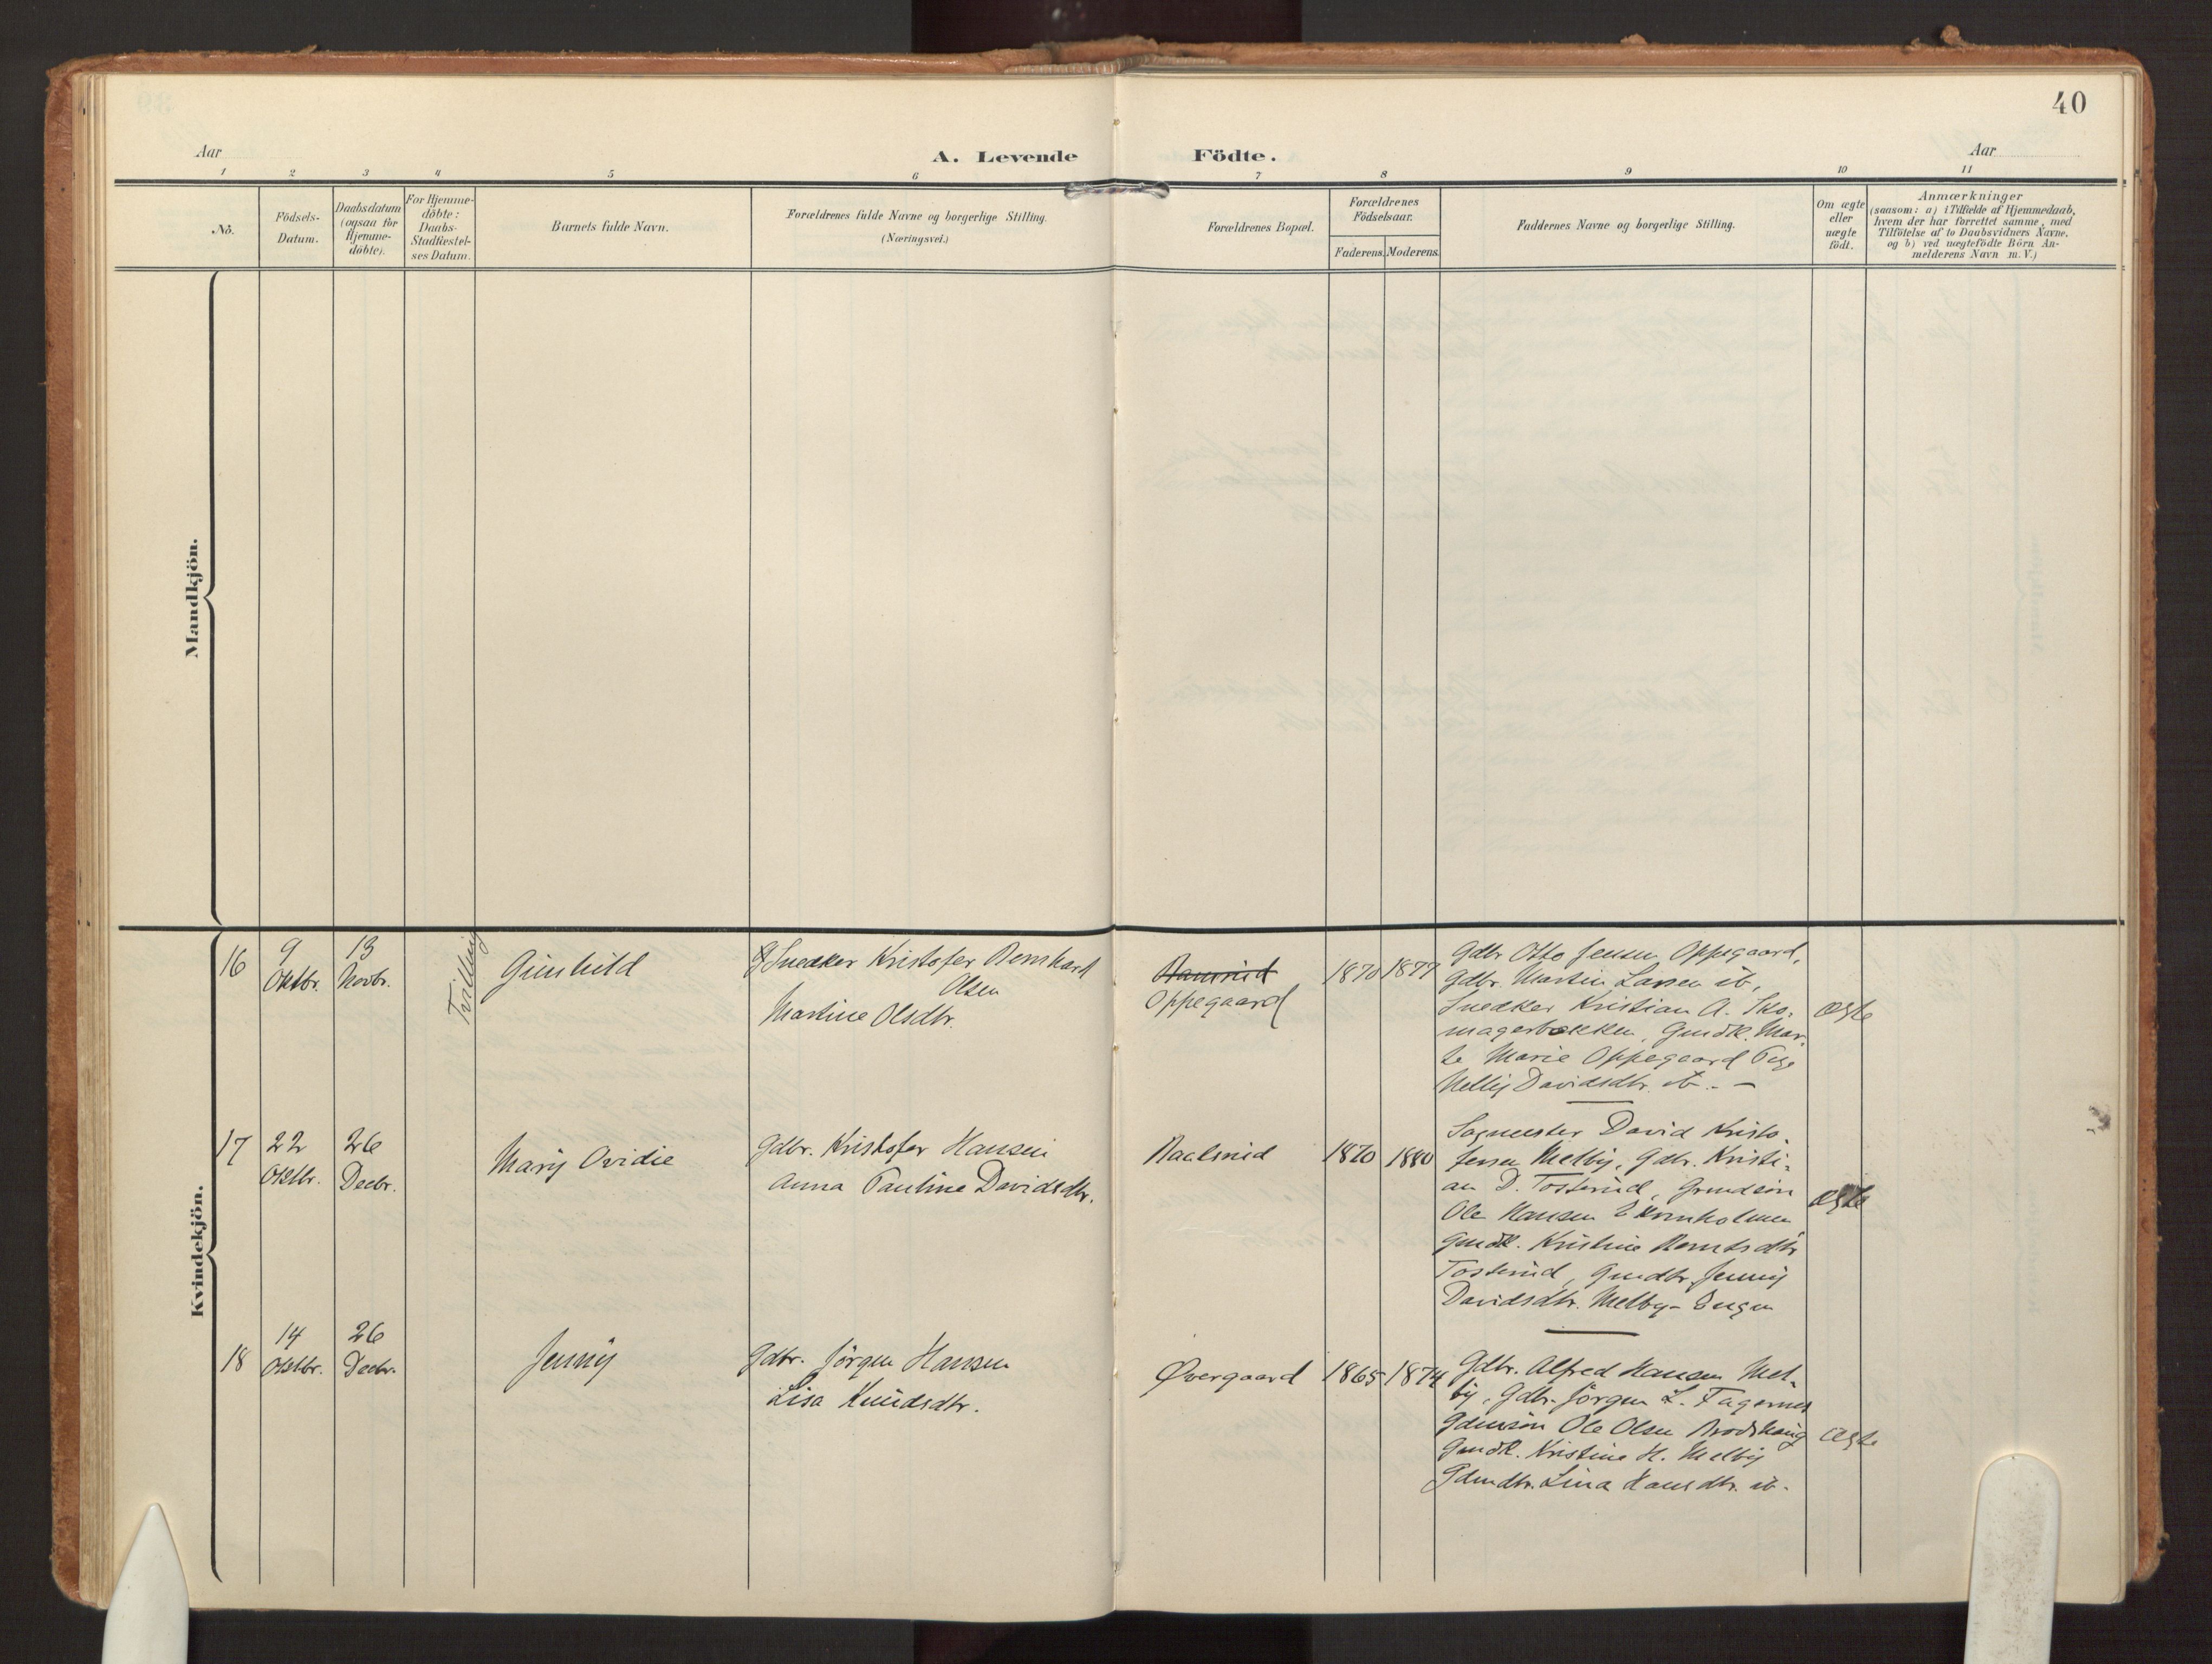 40
Aar
A. Levende Födte.
Aar
1 2 3 4 5 6 7 8 9 10 11
No.
Födsels-
Datum.
Daabsdatum
(ogsaa for
Hjemme-
döbte).
For Hjemme-
döbte:
Daabs-
Stadfæstel-
ses Datum.
Barnets fulde Navn.
Forældrenes fulde Navne og borgerlige Stilling.
(Næringsvei.)
Forældrenes Bopæl.
Forældrenes
Födselsaar.
Faderens. Moderens.
Faddernes Navne og borgerlige Stilling.
Om ægte
eller
uægte
födt.
Anmærkninger
(saasom: a) i Tilfælde af Hjemmedaab,
hvem der har forrettet samme, med
Tilföielse af to Daabsvidners Navne,
og b) ved uægtefödte Börn An-
melderens Navn m. V.)
Mandkjön.
Kvindekjön.
16
9
Oktbr.
13
Novbr.
Tvilling
Gunhild
Snedker Kristofer Bernhard
Olsen
Martine Olsdtr.
Oppegaard
1870 1877
Gdbr Otto Jensen Oppegaard,
Gdbr. Martin Larsen ib,
Snedker Kristian A. Sko-
magerbækken, Gmdk. Mar-
te Marie Oppegaard Pige
Nelly Davidsdtr. ib. -
Ægte
17
22
Oktbr.
26
Decbr.
Mary Ovidie
Gdbr. Kristofer Hansen
Anna Pauline Davidsdtr.
Raalsrud
1870 1880
Sagmester David Kristo-
fersen Melby, Gdbr. Kristi-
an D. Tosterud, Grmdsön
Ole Hansen
Gmdk. Kristine Berntsdtr
Tosterud, Gmdtr. Jenny
Davidsdtr. Melby-Engen
Ægte
18
14
Oktbr.
26
Decbr.
Jenny
Gdbr. Jörgen Hansen
Lisa Knudsdtr.
Övergaard
1865 1874
Gdbr. Alfred Hansen Mel-
by, Gdbr. Jörgen L. Fagernes
Gdmsön Ole Olsen
Gmdk. Kristine H. Melby
Gdmdtr. Lina Hansdtr. ib.
Ægte